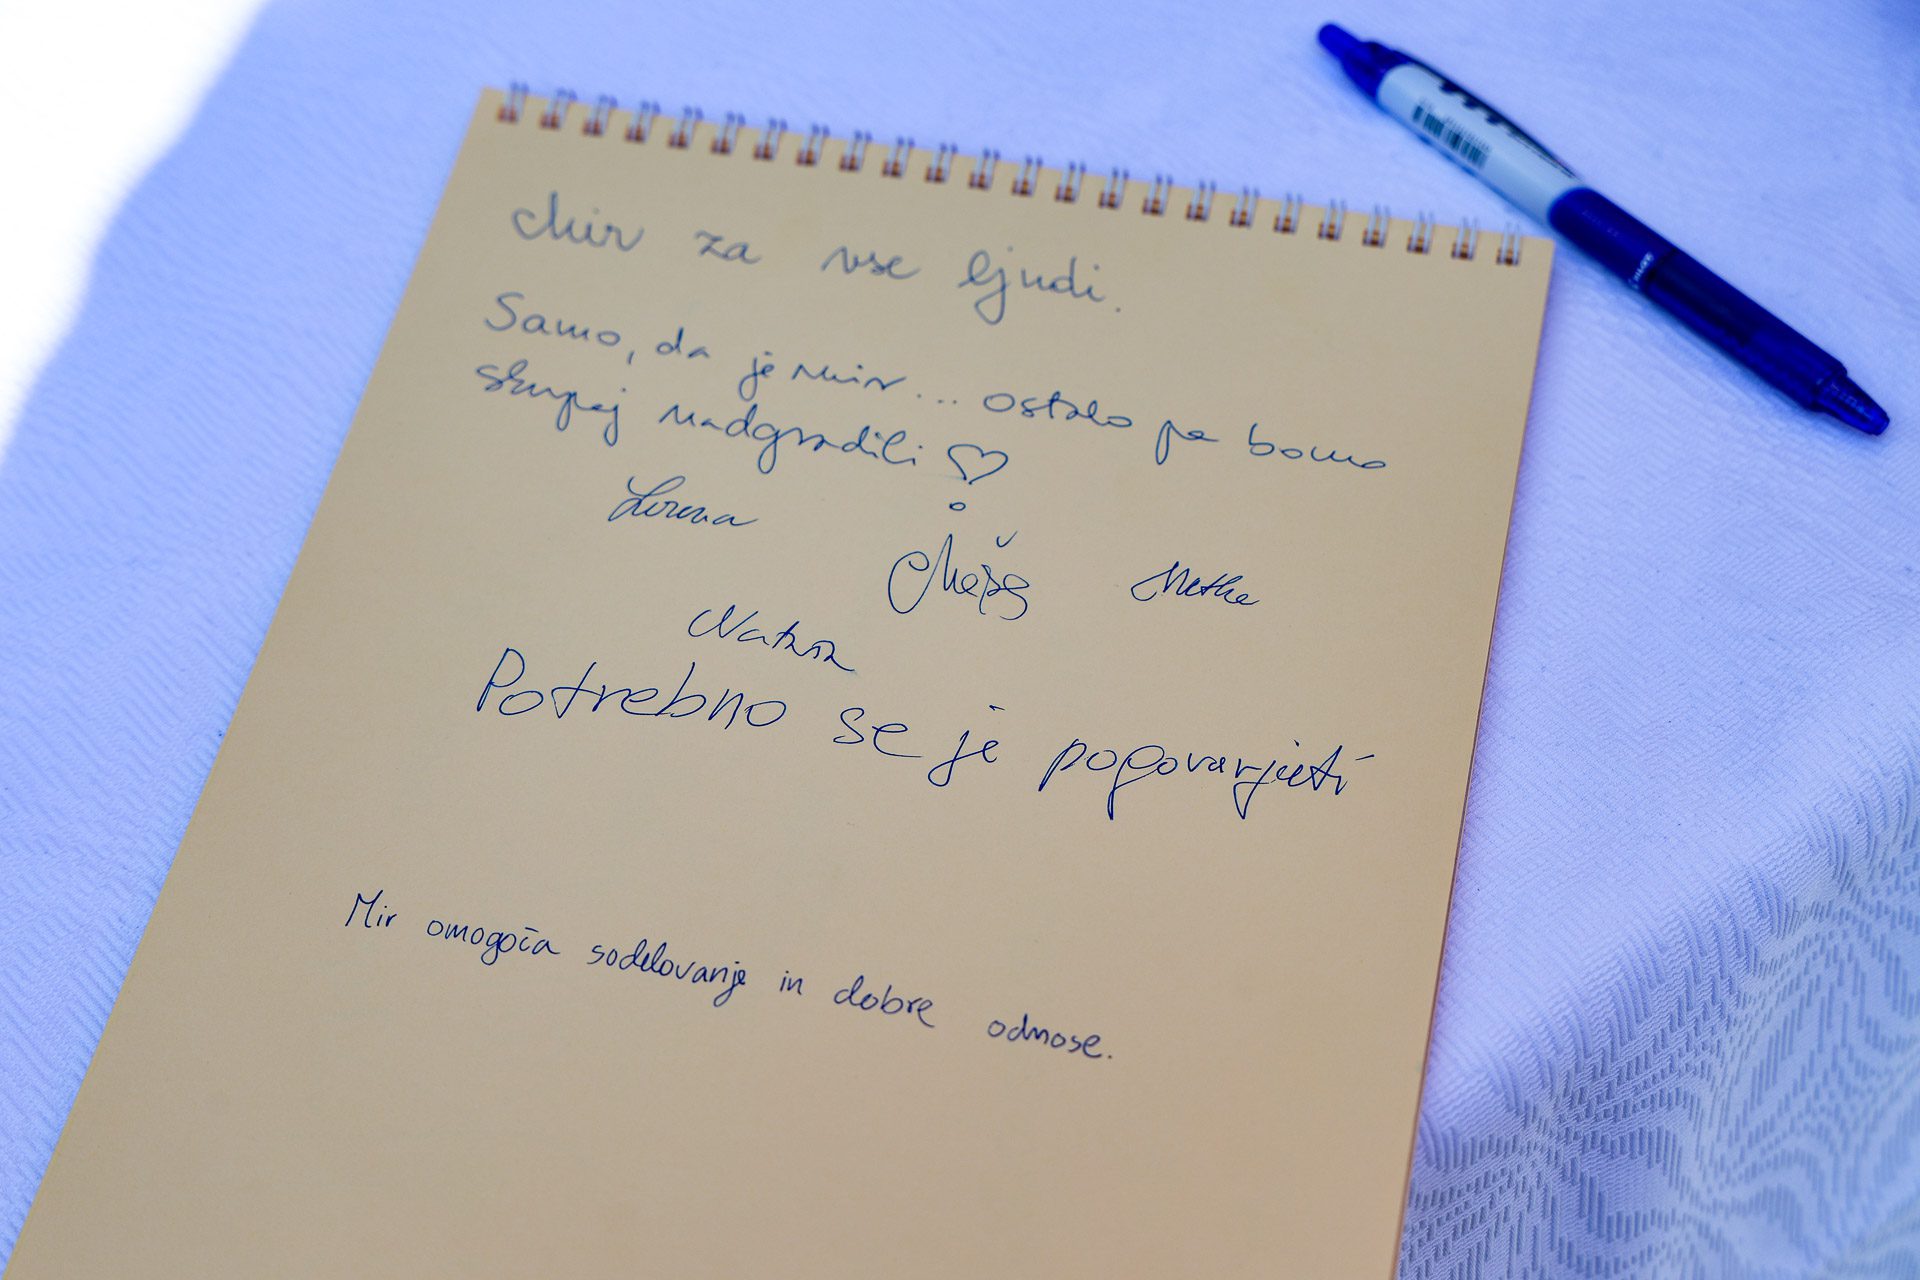 Mir za vse ljudi.
Samo, da je mir... ostalo pa bomo
skupaj nadgradili ♡
Lorena
Maša Metka
Nataša
Potrebno se je pogovarjati
Mir omogoča sodelovanje in dobre odnose.